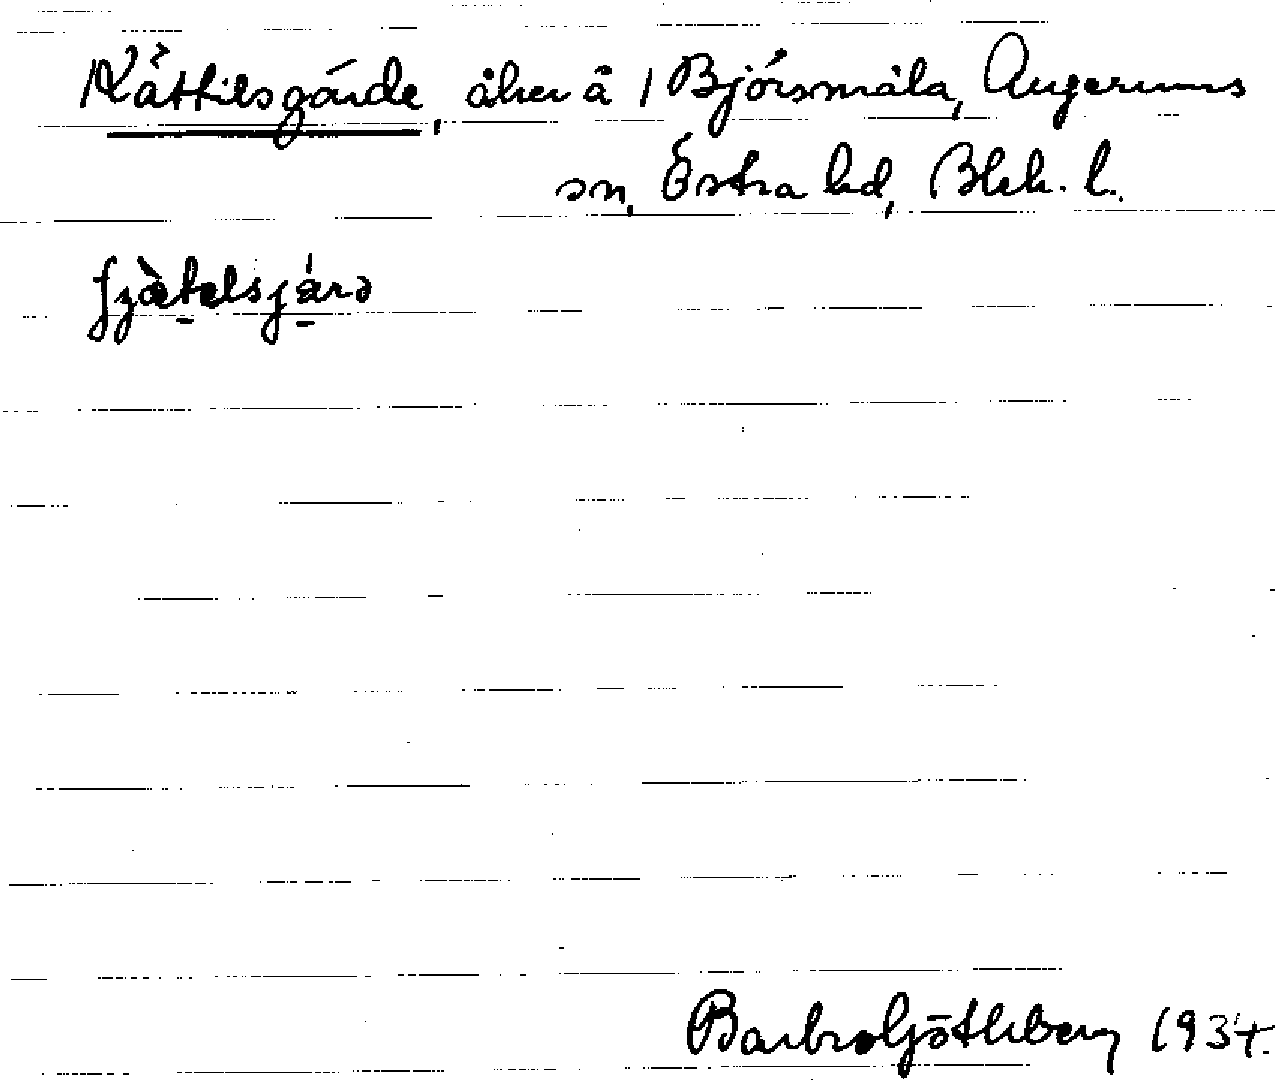 Kättilsgärde, åker å 1 Björsmåla, Augerums
sn, Östra hd, Blek. l.
Barbro Götlberg 1934.